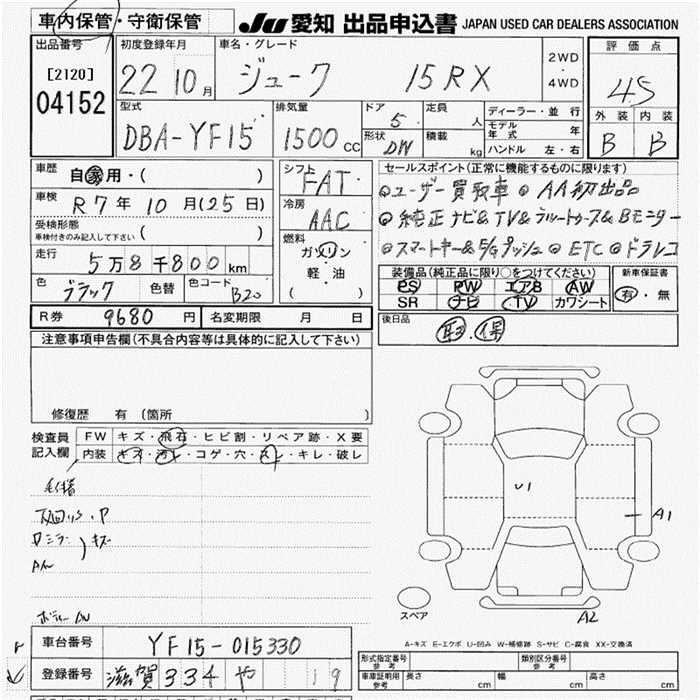 車内保管・守衛保管
JU 愛知 出品申込書 JAPAN USED CAR DEALERS ASSOCIATION
出品番号
[2120]
04152
初度登録年月
22 10月
車名・グレード
ジューク 15RX
2WD
・
4WD
評価点
4.5
外装 内装
B B
型式
DBA-YF15
排気量
1500 CC
ドア
5
形状
DW
定員 人
積載 kg
ディーラー・並行
モデル年式 年
ハンドル 左・右
車歴
自家用・( )
車検
R7年10月(25日)
受検形態
車検付きのみ記入して下さい ( )
走行
5万8千800km
色
ブラック
色替
色コード
B20
シフト
FAT
冷房
AAC
燃料
ガソリン・
軽・油
( )
セールスポイント(正常に機能するものに限ります)
◎ユーザー買取車 ◎AA初出品
◎純正ナビ&TV&ブルートゥース&Bモニター
◎スマートキー&E/Gプッシュ ◎ETC ◎ドラレコ
装備品(純正品に限り○をつけてください)
PS PW エアB AW
SR ナビ TV カワシート
新車保証書
有・無
後日品
取・保
R券 9680円 名変期限 月 日
注意事項申告欄(不具合内容等は具体的に記入して下さい)
修復歴 有(箇所 )
検査員記入欄
FW キズ・飛石・ヒビ割・リペア跡・X要
内装 キズ・汚レ・コゲ・穴・スレ・キレ・破レ
キズ
U1
A1
A2
スペア
A-キズ E-エクボ U-凹み W-補修跡 S-サビ C-腐食 XX-交換済
車台番号 YF15-015330
登録番号 滋賀334 や 19
形式指定番号 参考
類別区分番号 参考
車庫証明用 参考 長さ cm 幅 cm 高さ cm